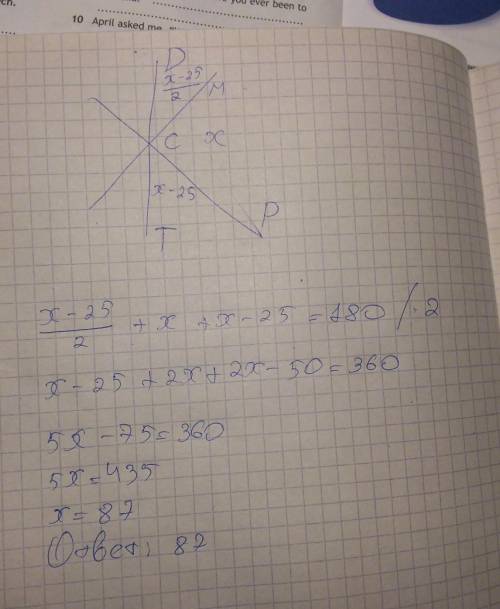 ch.
e you ever been to
10 April asked me
D
x-25
2
M
C x
x-25
P
T
x-25
2
+ x + x-25 = 180 / · 2
x-25 + 2x + 2x-50 = 360
5x-75 = 360
5x = 435
x = 87
Ответ: 87